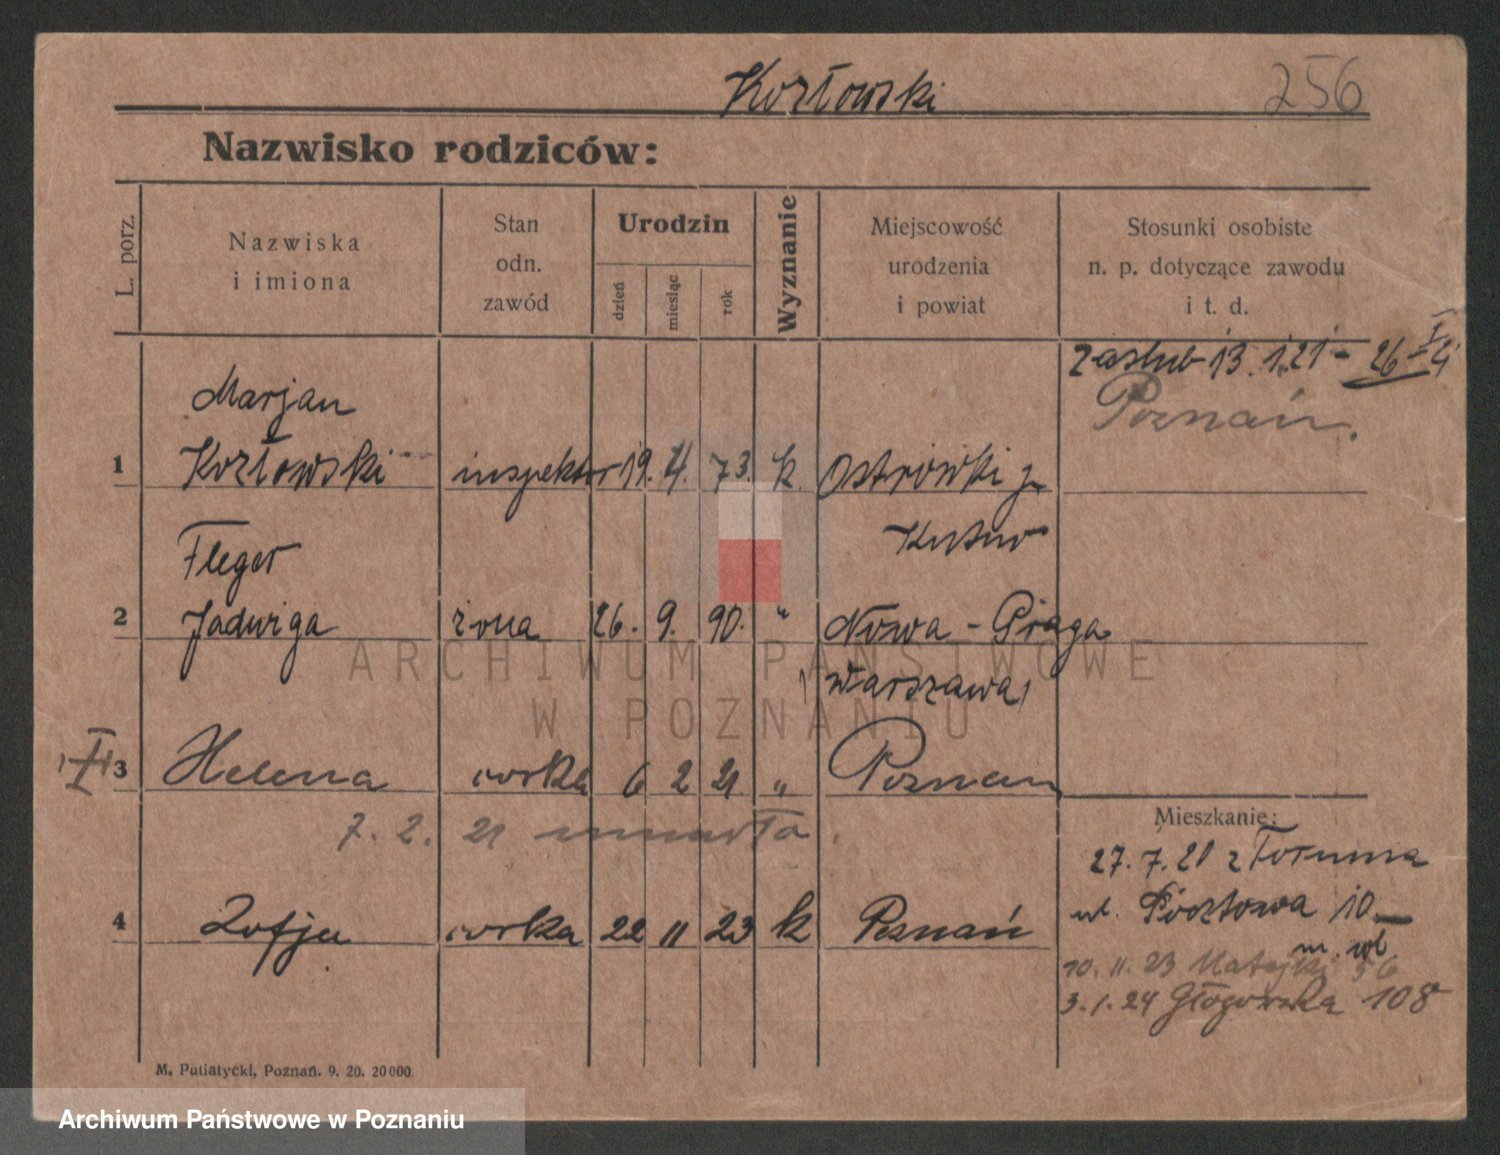 Kozłowski 256
Nazwisko rodziców:
L. porz.
Nazwiska
i imiona
Stan
odn.
zawód
Urodzin
dzień
miesiąc
rok
Wyznanie
Miejscowość
urodzenia
i powiat
Stosunki osobiste
n. p. dotyczące zawodu
i t. d.
zaślub 13.1.21 - 26
Poznań.
Marjan
1 Kozłowski inspektor 19. 4. 73. k. Ostrówki
Kutno
Fleger
2 Jadwiga żona 26. 9. 90. " Nowa - Praga
Warszawa
3 Helena córka 6 2 21 " Poznań
7. 2. 21 umarła.
Mieszkanie:
27. 7. 21 z Torunia
ul. Pocztowa 10
4 Zofja córka 22 11 23 k Poznań
m. wł
10. 11. 23 Matejki 56
3. 1. 24 Głogowska 108
M. Putiatycki, Poznań. 9. 20. 20000.
ARCHIWUM PAŃSTWOWE
W POZNANIU
Archiwum Państwowe w Poznaniu